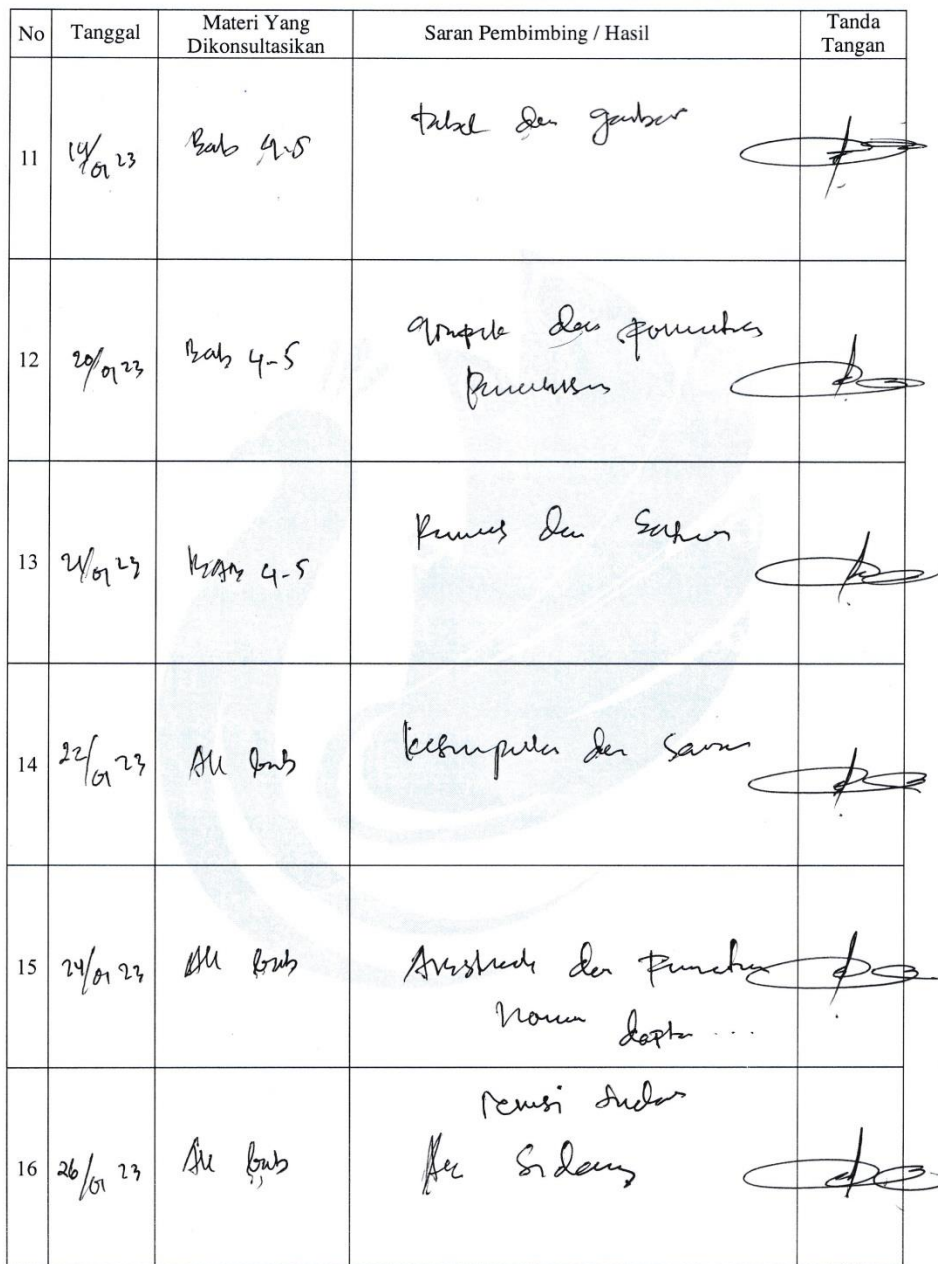 No Tanggal Materi Yang Dikonsultasikan Saran Pembimbing / Hasil Tanda Tangan
11 19/01 23 Bab 4-5 tabel dan gambar
12 20/01 23 Bab 4-5 dan
13 21/01 23 BAB 4-5 Rumus dan
14 22/01 23 All bab kesimpulan dan saran
15 24/01 23 All bab dan
...
16 26/01 23 All bab revisi sudah
Acc Sidang